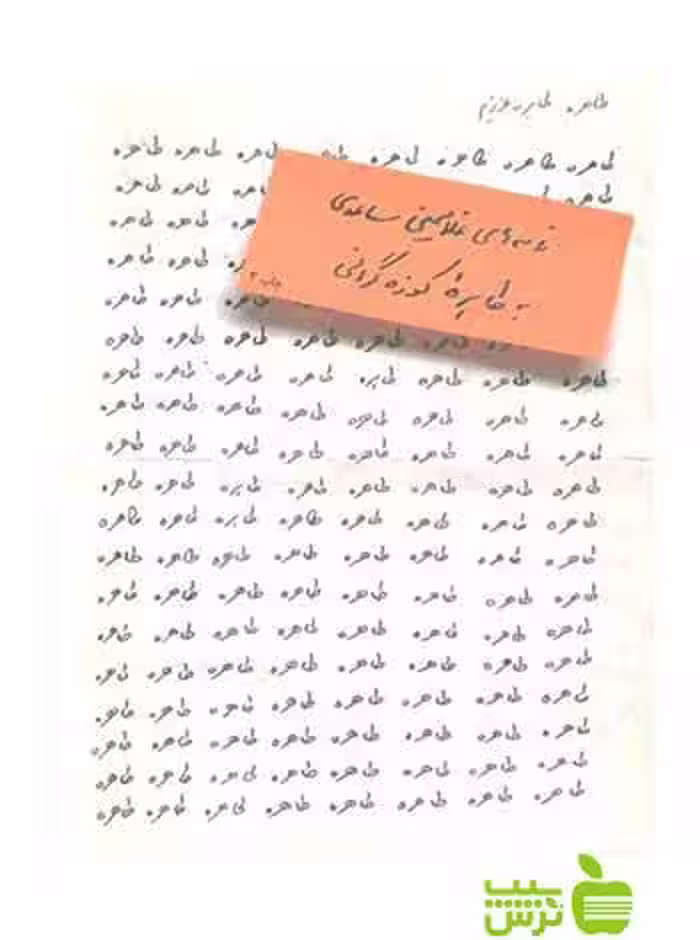 طاهره. طاهره عزیزم
طاهره طاهره طاهره طاهره طاهره طاهره طاهره
طاهره طاهره طاهره
نامه‌های غلامحسین ساعدی
طاهره طاهره
طاهره طاهره
به طاهرهٔ کوزه‌گرانی
چاپ ۲
طاهره طاهره طاهره
طاهره طاهره طاهره طاهره طاهره طاهره
طاهره طاهره طاهره طاهره طاهره طاهره طاهره طاهره
طاهره طاهره طاهره طاهره طاهره طاهره طاهره طاهره
طاهره طاهره طاهره طاهره طاهره طاهره طاهره طاهره
طاهره طاهره طاهره طاهره طاهره طاهره طاهره طاهره
طاهره طاهره طاهره طاهره طاهره طاهره طاهره طاهره
طاهره طاهره طاهره طاهره طاهره طاهره طاهره طاهره
طاهره طاهره طاهره طاهره طاهره طاهره طاهره طاهره
طاهره طاهره طاهره طاهره طاهره طاهره طاهره طاهره
طاهره طاهره طاهره طاهره طاهره طاهره طاهره طاهره
طاهره طاهره طاهره طاهره طاهره طاهره طاهره طاهره
طاهره طاهره طاهره طاهره طاهره طاهره طاهره طاهره
طاهره طاهره طاهره طاهره طاهره طاهره طاهره طاهره
طاهره طاهره طاهره طاهره طاهره طاهره طاهره طاهره
سیب
ترش